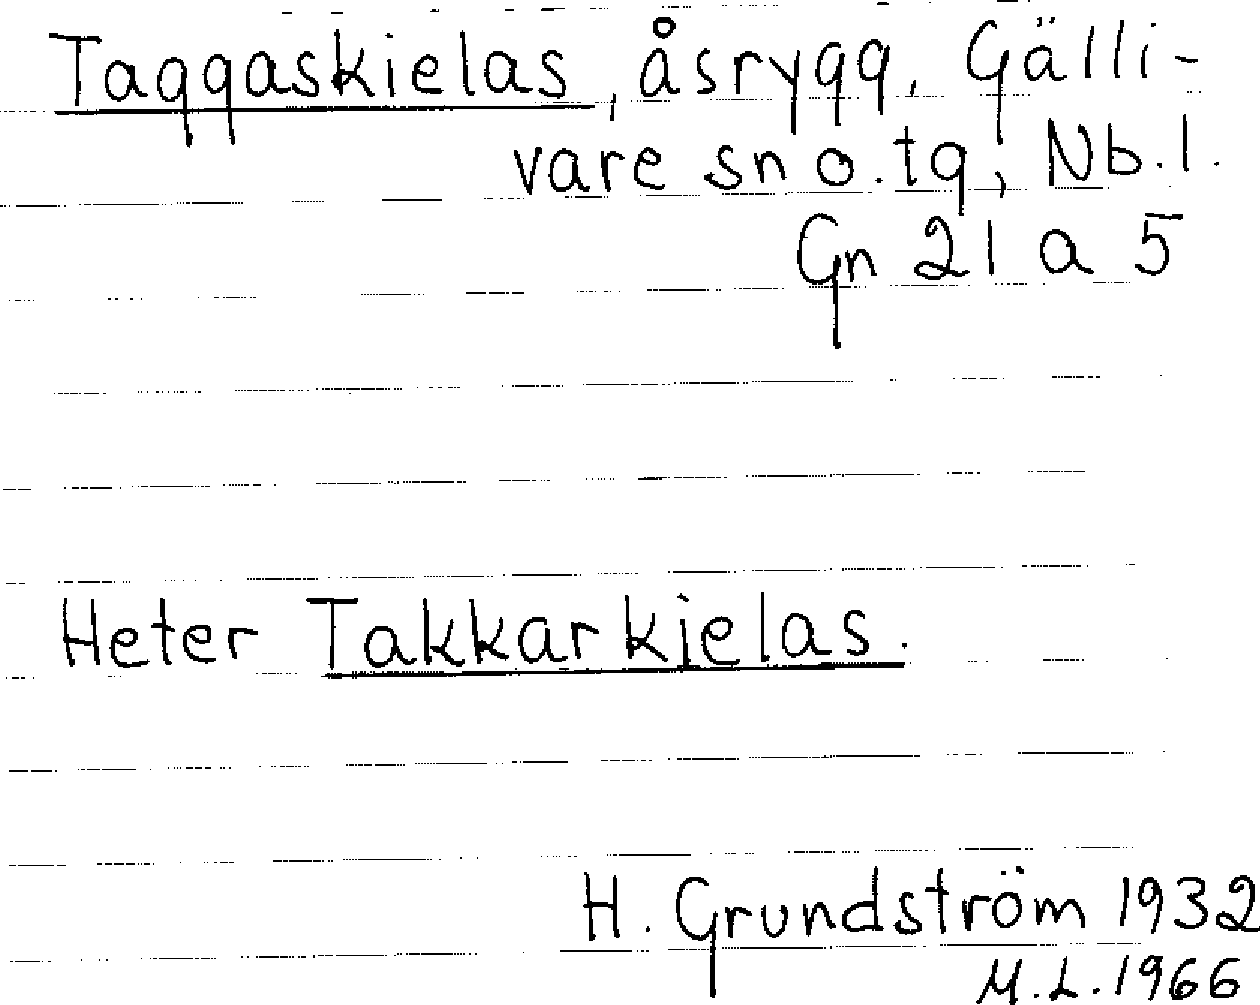 Taggaskielas, åsrygg, Gälli-
vare sn o. tg, Nb. l.
Gn 21 a 5
Heter Takkarkielas.
H. Grundström 1932
M.L. 1966